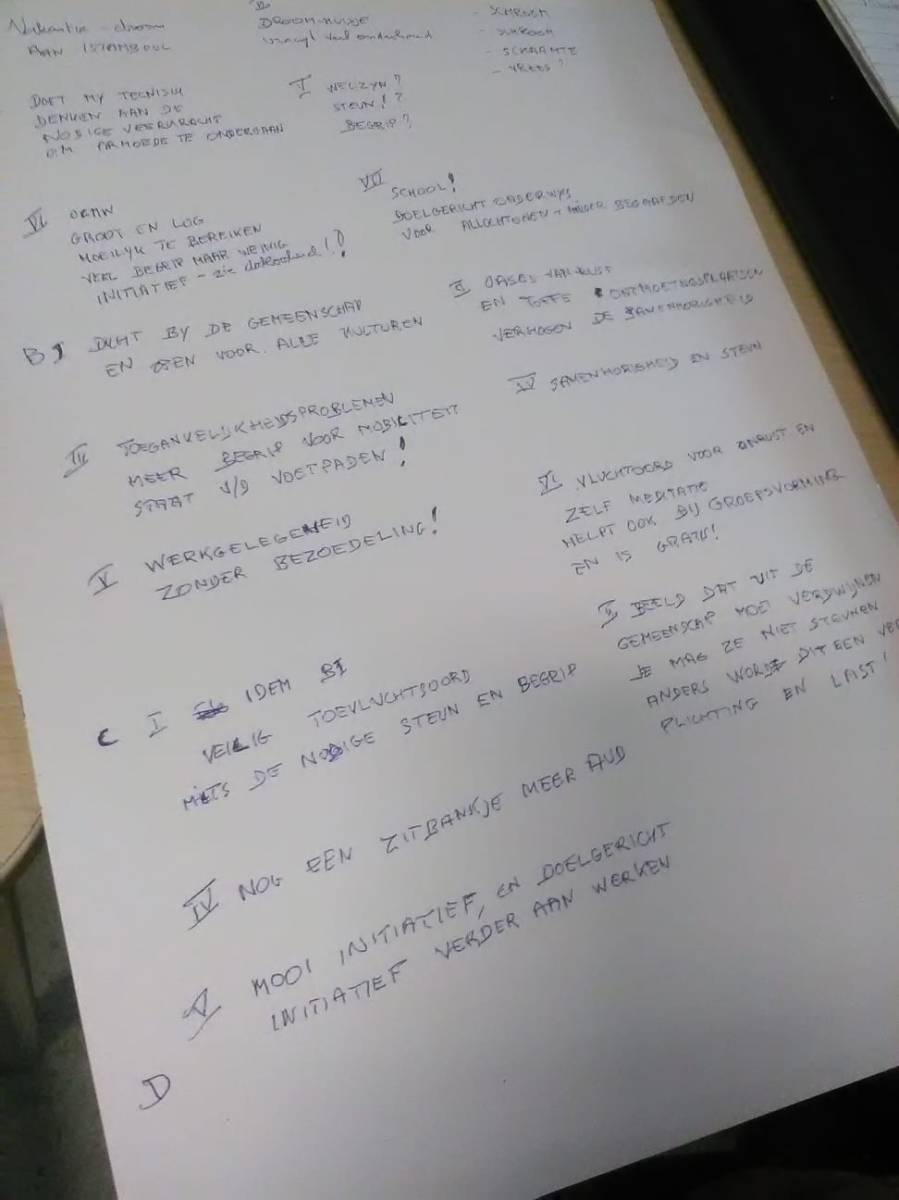 Vakantie-droom
AAN ISTAMBOUL
DROOM-HUISJE
vraagt veel onderhoud
- SCHROOM
- SCHAAMTE
- VREES?
DOET MY
DENKEN AAN DE
NODIGE VEERKRACHT
OM ARMOEDE TE ONDERGAAN
V WELZYN?
STEUN!?
BEGRIP?
VI OCMW
GROOT EN LOG
MOEILYK TE BEREIKEN
VEEL BEGRIP MAAR WEINIG
INITIATIEF - zie !?
VII
SCHOOL!
DOELGERICHT ONDERWYS
VOOR ALLOCHTONEN + MINDER BEGAAFDEN
B I DICHT BY DE GEMEENSCHAP
EN OPEN VOOR ALLE KULTUREN
II OASES VAN RUST
EN TOFFE ONTMOETINGSPLAATSEN
VERHOGEN DE SAMENHORIGHEID
III TOEGANKELIJKHEIDSPROBLEMEN
MEER BEGRIP VOOR MOBILITEIT
STAAT V/D VOETPADEN!
IV SAMENHORIGHEID EN STEUN
V WERKGELEGENHEID
ZONDER BEZOEDELING!
VI VLUCHTOORD VOOR ONRUST EN
ZELF MEDITATIE
HELPT OOK BIJ GROEPSVORMING
EN IS GRATIS!
C I IDEM BI
VEILIG TOEVLUCHTSOORD
MITS DE NODIGE STEUN EN BEGRIP
II BEELD DAT UIT DE
GEMEENSCHAP MOET VERDWIJNEN
JE MAG ZE NIET STEUNEN
ANDERS WORDT DIT EEN VER
PLICHTING EN LAST!
IV NOG EEN ZITBANKJE MEER AUB
V MOOI INITIATIEF, EN DOELGERICHT
INITIATIEF VERDER AAN WERKEN
D